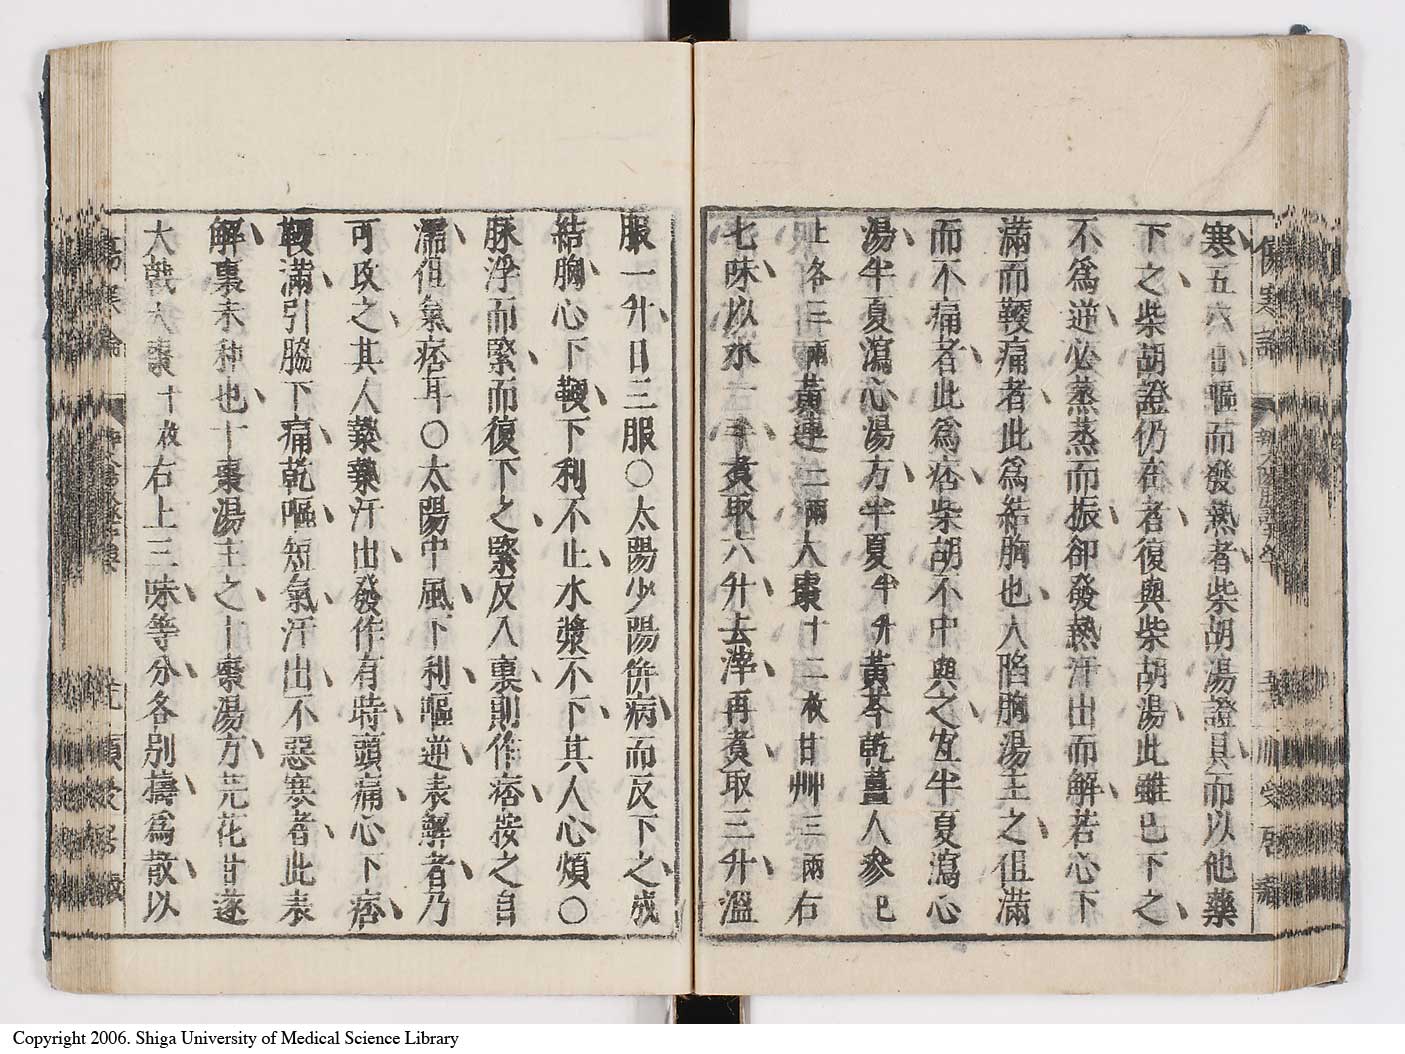 寒五六日嘔而發熱者柴胡湯證具而以他藥
下之柴胡證仍在者復與柴胡湯此雖已下之
不爲逆必蒸蒸而振卻發熱汗出而解若心下
滿而鞕痛者此爲結胸也大陷胸湯主之但滿
而不痛者此爲痞柴胡不中與之宜半夏瀉心
湯半夏瀉心湯方半夏半升黃芩乾薑人參已
上各三兩黃連二兩大棗十二枚甘艸三兩右
七味以水一斗煮取六升去滓再煮取三升溫
服一升日三服〇太陽少陽併病而反下之成
結胸心下鞕下利不止水漿不下其人心煩〇
脉浮而緊而復下之緊反入裏則作痞按之自
濡但氣痞耳〇太陽中風下利嘔逆表解者乃
可攻之其人漐漐汗出發作有時頭痛心下痞
鞕滿引脇下痛乾嘔短氣汗出不惡寒者此表
解裏未和也十棗湯主之十棗湯方芫花甘遂
大戟大棗十枚右上三味等分各別擣爲散以
傷寒論
Copyright 2006. Shiga University of Medical Science Library